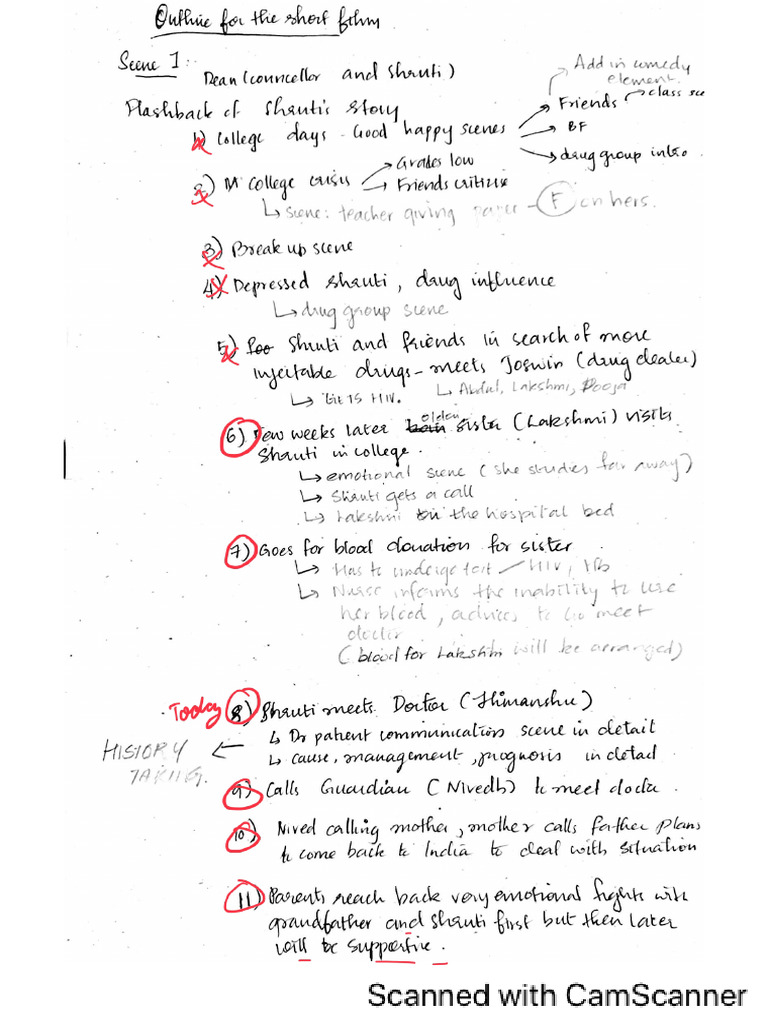 Outline for the short film
Scene 1:
Dean (councellor and Shruti)
Flashback of Shruti's story
Add in comedy
element.
1) College days - Good happy scenes
Friends
class sce
BF
drug group intro.
2) M College crisis
Grades low
Friends critizie
scene: teacher giving paper - F on hers.
3) Break up scene
4) Depressed Shruti, drug influence
drug group scene
5) Shruti and friends in search of more
injectable drugs - meets Joswin (drug dealer)
HIV.
Abdul, Lakshmi, Pooja
6) Few weeks later older sister (Lakshmi) visits
Shruti in college.
emotional scene (she studies far away)
Shruti gets a call
Lakshmi on the hospital bed
7) Goes for blood donation for sister
Has to undergo test - HIV, HB
Nurse informs the inability to use
her blood, advices to go meet
doctor
(blood for Lakshmi will be arranged)
Today 8) Shruti meets Doctor (Himanshu)
Dr patient communication scene in detail
HISTORY
TAKING.
cause, management, prognosis in detail
9) Calls Guardian (Nivedh) to meet doctor.
10) Nived calling mother, mother calls father plans
to come back to India to deal with situation
11) Parents reach back very emotional fights with
grandfather and Shruti first but then later
will be supportive.
Scanned with CamScanner